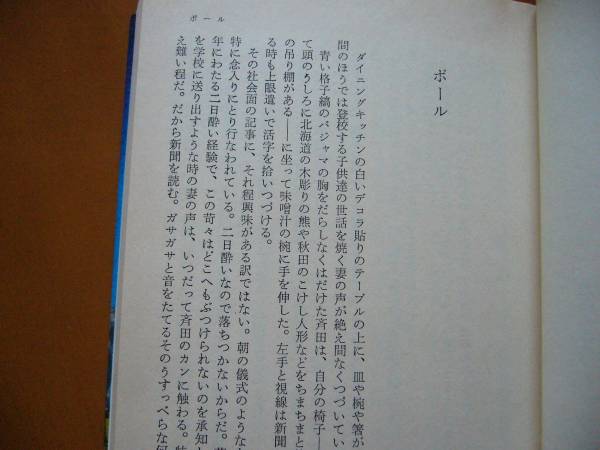 ボール
ボール
ダイニングキッチンの白いデコラ貼りのテーブルの上に、皿や椀や箸が
間のほうでは登校する子供達の世話を焼く妻の声が絶え間なくつづいてい
青い格子縞のパジャマの胸をだらしなくはだけた斉田は、自分の椅子―
て頭のうしろに北海道の木彫りの熊や秋田のこけし人形などをちまちまと
の吊り棚がある――に坐って味噌汁の椀に手を伸した。左手と視線は新聞
る時も上眼遣いで活字を拾いつづける。
その社会面の記事に、それ程興味がある訳ではない。朝の儀式のような
特に念入りにとり行なわれている。二日酔いなので落ちつかないからだ。
年にわたる二日酔い経験で、この苛々はどこへもぶつけられないのを承知
を学校に送り出すような時の妻の声は、いつだって斉田のカンに触わる。
え難い程だ。だから新聞を読む。ガサガサと音をたてるそのうすっぺらな